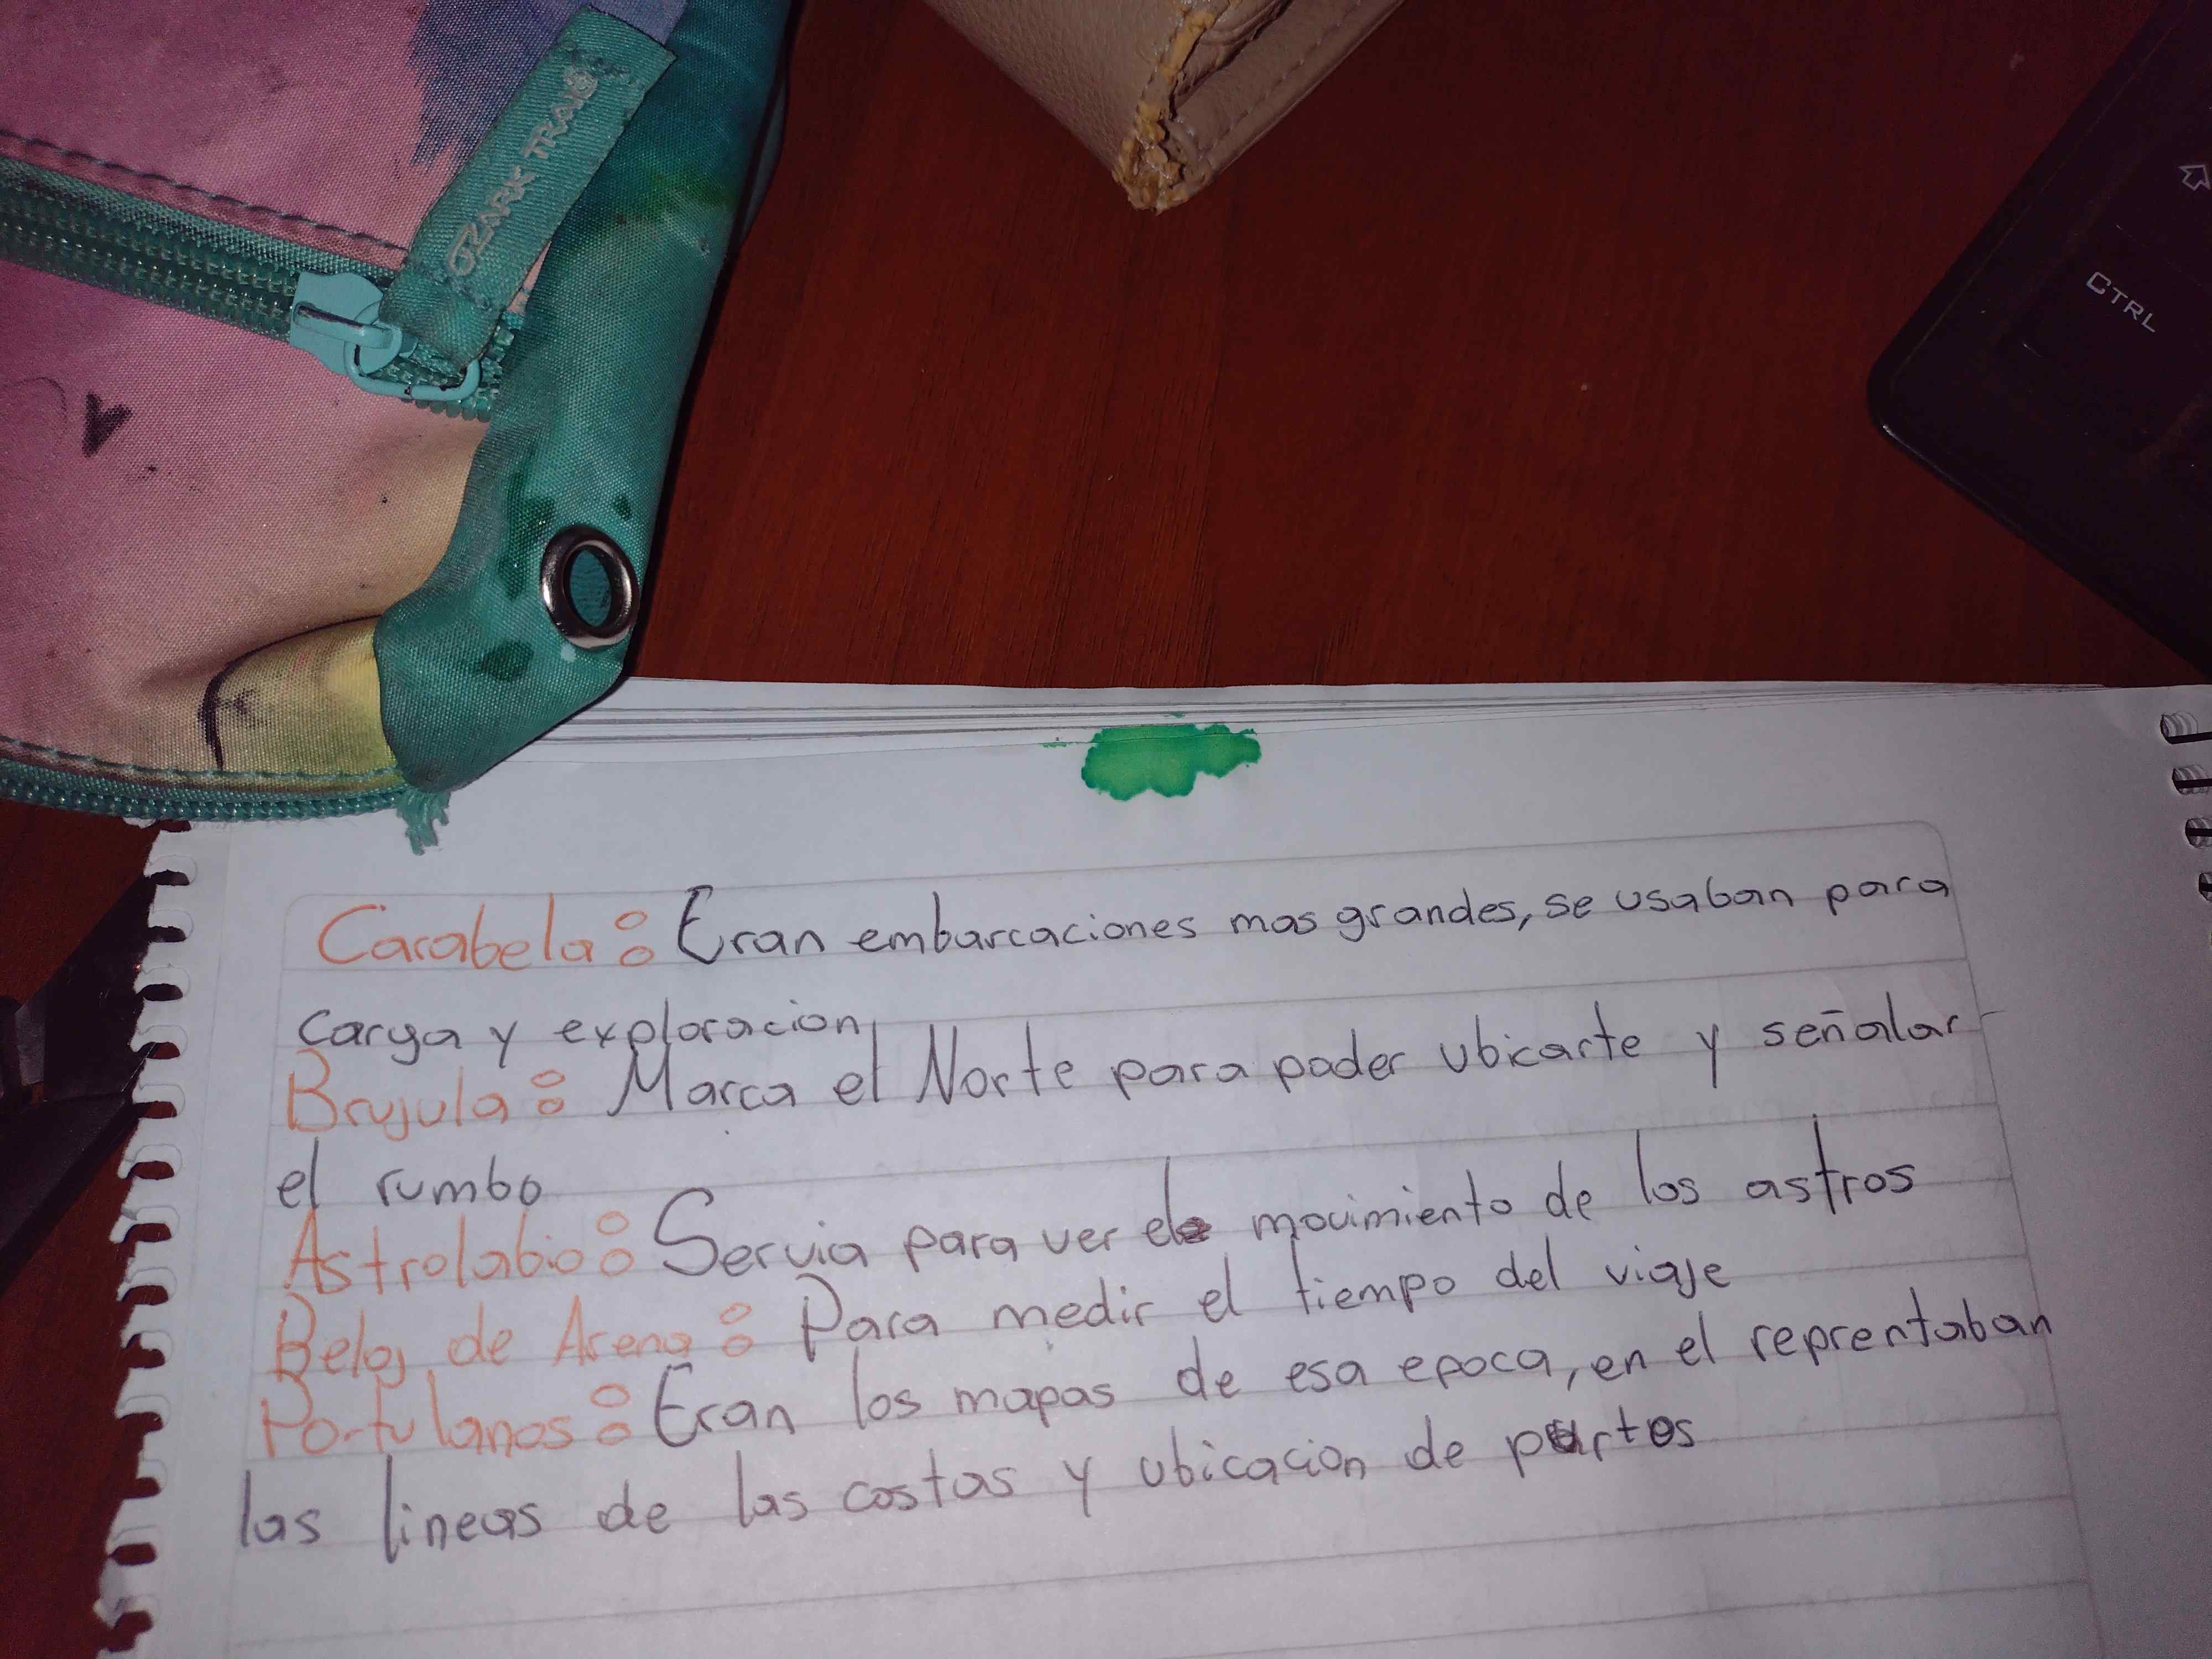 OZARK TRAIL
CTRL
Carabela: Eran embarcaciones mas grandes, se usaban para
carga y exploracion
Brujula: Marca el Norte para poder ubicarte y señalar
el rumbo
Astrolabio: Servia para ver el movimiento de los astros
Reloj de Arena: Para medir el tiempo del viaje
Portulanos: Eran los mapas de esa epoca, en el reprentaban
las lineas de las costas y ubicacion de purtos